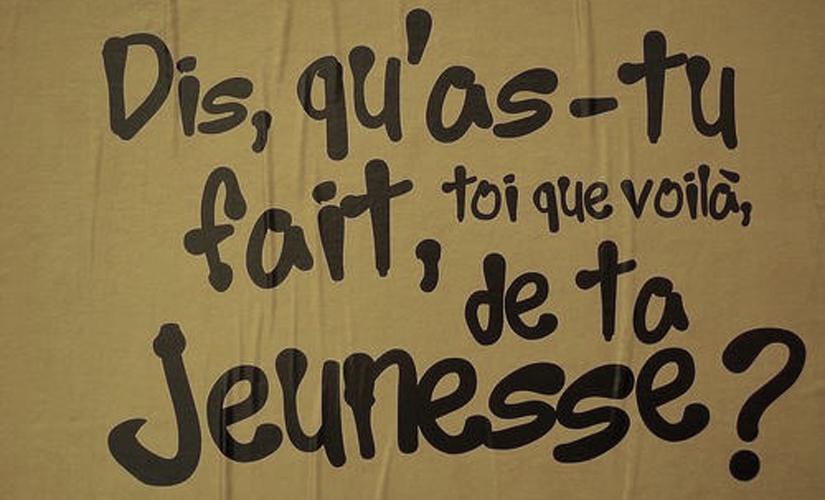 Dis, qu'as-tu
fait, toi que voilà,
de ta
Jeunesse?